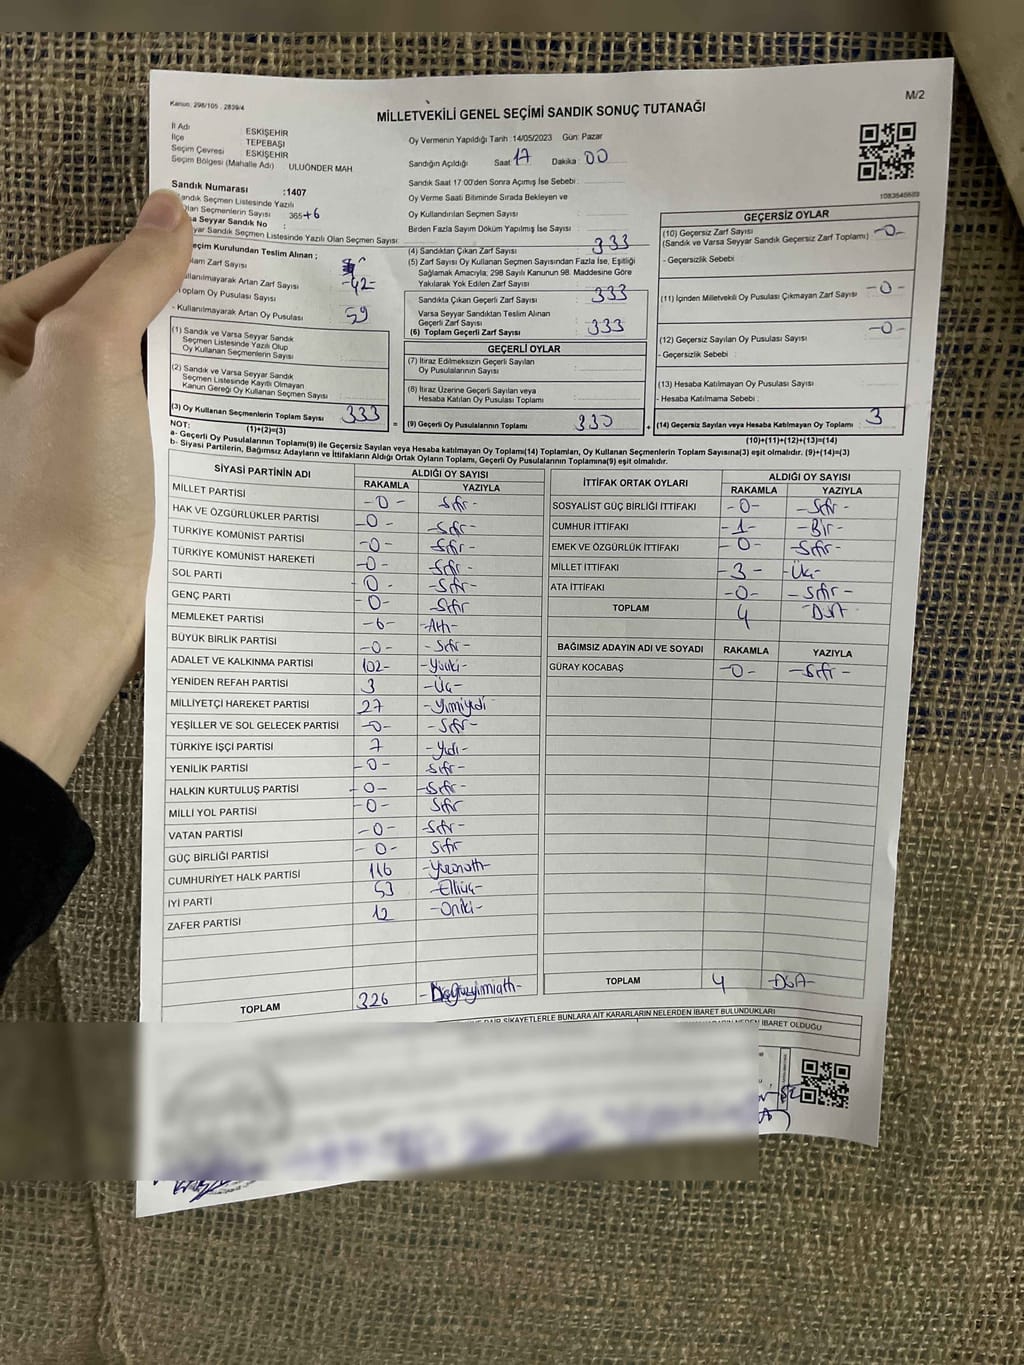 Kanun: 298/105 , 2839/4
M/2
MİLLETVEKİLİ GENEL SEÇİMİ SANDIK SONUÇ TUTANAĞI
İl Adı ESKİŞEHİR
İlçe TEPEBAŞI
Seçim Çevresi ESKİŞEHİR
Seçim Bölgesi (Mahalle Adı) ULUÖNDER MAH
Sandık Numarası :1407
Sandık Seçmen Listesinde Yazılı
Olan Seçmenlerin Sayısı 365+6
Seyyar Sandık No :
Sandık Seçmen Listesinde Yazılı Olan Seçmen Sayısı:
Seçim Kurulundan Teslim Alınan ;
Zarf Sayısı
Kullanılmayarak Artan Zarf Sayısı -42-
Toplam Oy Pusulası Sayısı
- Kullanılmayarak Artan Oy Pusulası 59
(1) Sandık ve Varsa Seyyar Sandık
Seçmen Listesinde Yazılı Olup
Oy Kullanan Seçmenlerin Sayısı
(2) Sandık ve Varsa Seyyar Sandık
Seçmen Listesinde Kayıtlı Olmayan
Kanun Gereği Oy Kullanan Seçmen Sayısı
(3) Oy Kullanan Seçmenlerin Toplam Sayısı 333
(1)+(2)=(3)
Oy Vermenin Yapıldığı Tarih :14/05/2023 Gün: Pazar
Sandığın Açıldığı Saat 17 Dakika 00
Sandık Saat 17:00'den Sonra Açımış İse Sebebi :
Oy Verme Saati Bitiminde Sırada Bekleyen ve
Oy Kullandırılan Seçmen Sayısı :
Birden Fazla Sayım Döküm Yapılmış İse Sayısı :
(4) Sandıktan Çıkan Zarf Sayısı 333
(5) Zarf Sayısı Oy Kullanan Seçmen Sayısından Fazla İse, Eşitliği
Sağlamak Amacıyla; 298 Sayılı Kanunun 98. Maddesine Göre
Yakılarak Yok Edilen Zarf Sayısı
Sandıkta Çıkan Geçerli Zarf Sayısı 333
Varsa Seyyar Sandıktan Teslim Alınan
Geçerli Zarf Sayısı
(6) Toplam Geçerli Zarf Sayısı 333
GEÇERLİ OYLAR
(7) İtiraz Edilmeksizin Geçerli Sayılan
Oy Pusulalarının Sayısı
(8) İtiraz Üzerine Geçerli Sayılan veya
Hesaba Katılan Oy Pusulası Toplamı
= (9) Geçerli Oy Pusulalarının Toplamı 330
1083545693
GEÇERSİZ OYLAR
(10) Geçersiz Zarf Sayısı -0-
(Sandık ve Varsa Seyyar Sandık Geçersiz Zarf Toplamı)
- Geçersizlik Sebebi
(11) İçinden Milletvekili Oy Pusulası Çıkmayan Zarf Sayısı -0-
(12) Geçersiz Sayılan Oy Pusulası Sayısı -0-
- Geçersizlik Sebebi :
(13) Hesaba Katılmayan Oy Pusulası Sayısı
- Hesaba Katılmama Sebebi :
+ (14) Geçersiz Sayılan veya Hesaba Katılmayan Oy Toplamı : 3
(10)+(11)+(12)+(13)=(14)
NOT:
a- Geçerli Oy Pusulalarının Toplamı(9) ile Geçersiz Sayılan veya Hesaba katılmayan Oy Toplamı(14) Toplamları, Oy Kullanan Seçmenlerin Toplam Sayısına(3) eşit olmalıdır. (9)+(14)=(3)
b- Siyasi Partilerin, Bağımsız Adayların ve İttifakların Aldığı Ortak Oyların Toplamı, Geçerli Oy Pusulalarının Toplamına(9) eşit olmalıdır.
SİYASİ PARTİNİN ADI ALDIĞI OY SAYISI
RAKAMLA YAZIYLA
MİLLET PARTİSİ -0- Sıfır-
HAK VE ÖZGÜRLÜKLER PARTİSİ -0- -Sıfır-
TÜRKİYE KOMÜNİST PARTİSİ -0- -Sıfır-
TÜRKİYE KOMÜNİST HAREKETİ -0- -Sıfır-
SOL PARTİ -0- -Sıfır-
GENÇ PARTİ -0- -Sıfır
MEMLEKET PARTİSİ -6- -Altı-
BÜYÜK BİRLİK PARTİSİ -0- -Sıfır-
ADALET VE KALKINMA PARTİSİ 102- -Yüziki-
YENİDEN REFAH PARTİSİ 3 -Üç-
MİLLİYETÇİ HAREKET PARTİSİ 27 -Yirmiyedi
YEŞİLLER VE SOL GELECEK PARTİSİ -0- -Sıfır-
TÜRKİYE İŞÇİ PARTİSİ 7 -Yedi-
YENİLİK PARTİSİ -0- Sıfır-
HALKIN KURTULUŞ PARTİSİ -0- -Sıfır-
MİLLİ YOL PARTİSİ -0- Sıfır
VATAN PARTİSİ -0- -Sıfır-
GÜÇ BİRLİĞİ PARTİSİ -0- Sıfır
CUMHURİYET HALK PARTİSİ 116 -Yüzonaltı-
İYİ PARTİ 53 -Elliüç-
ZAFER PARTİSİ 12 -Oniki-
TOPLAM 326
İTTİFAK ORTAK OYLARI ALDIĞI OY SAYISI
RAKAMLA YAZIYLA
SOSYALİST GÜÇ BİRLİĞİ İTTİFAKI -0- -Sıfır-
CUMHUR İTTİFAKI -1- -Bir-
EMEK VE ÖZGÜRLÜK İTTİFAKI -0- -Sıfır-
MİLLET İTTİFAKI -3- -Üç-
ATA İTTİFAKI -0- -Sıfır-
TOPLAM 4 -Dört
BAĞIMSIZ ADAYIN ADI VE SOYADI RAKAMLA YAZIYLA
GÜRAY KOCABAŞ -0- -Sıfır-
TOPLAM 4 -Dört-
DAİR ŞİKAYETLERLE BUNLARA AİT KARARLARIN NELERDEN İBARET BULUNDUKLARI
İBARET OLDUĞU